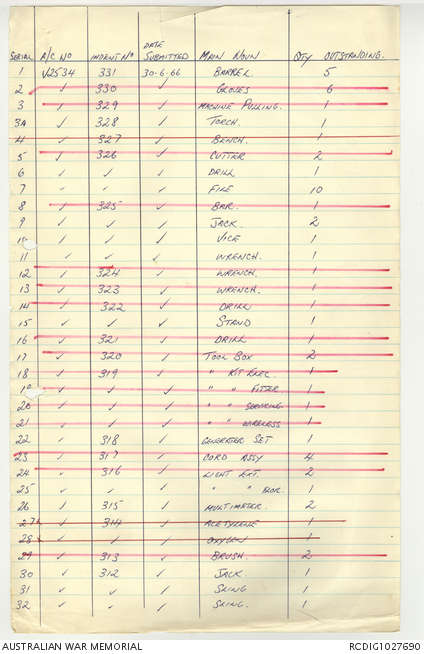 SERIAL A/C NO INDENT NO DATE SUBMITTED MAIN NOUN QTY OUTSTANDING.
1 V2534 331 30-6-66 BARREL. 5
2 ✓ 330 ✓ GLOVES 6
3 ✓ 329 ✓ MACHINE PULLING. 1
3A ✓ 328 ✓ TORCH. 1
4 ✓ 327 ✓ BENCH. 1
5 ✓ 326 ✓ CUTTER 2
6 ✓ ✓ ✓ DRILL 1
7 " " ✓ FILE 10
8 ✓ 325 ✓ BAR. 1
9 ✓ ✓ ✓ JACK. 2
10 ✓ ✓ ✓ VICE 1
11 ✓ ✓ ✓ WRENCH. 1
12 ✓ 324 ✓ WRENCH. 1
13 ✓ 323 ✓ WRENCH. 1
14 ✓ 322 ✓ DRILL 1
15 ✓ ✓ ✓ STAND 1
16 ✓ 321 ✓ DRILL 1
17 ✓ 320 ✓ TOOL BOX 2
18 ✓ 319 ✓ " KIT ELEC. 1
19 ✓ ✓ ✓ " " FITTER 1
20 ✓ ✓ ✓ " " 1
21 ✓ ✓ ✓ " " WIRELESS 1
22 ✓ 318 ✓ GENERATOR SET 1
23 ✓ 317 ✓ CORD ASSY 4
24 ✓ 316 ✓ LIGHT EXT. 2
25 ✓ ✓ ✓ " " 1
26 ✓ 315 ✓ MULTIMETER. 2
27 ✓ 314 ✓ ACETYLENE 1
28 ✓ ✓ ✓ OXYGEN 1
29 ✓ 313 ✓ BRUSH. 2
30 ✓ 312 ✓ JACK. 1
31 ✓ ✓ ✓ SLING 1
32 ✓ ✓ ✓ SLING. 1
AUSTRALIAN WAR MEMORIAL RCDIG1027690